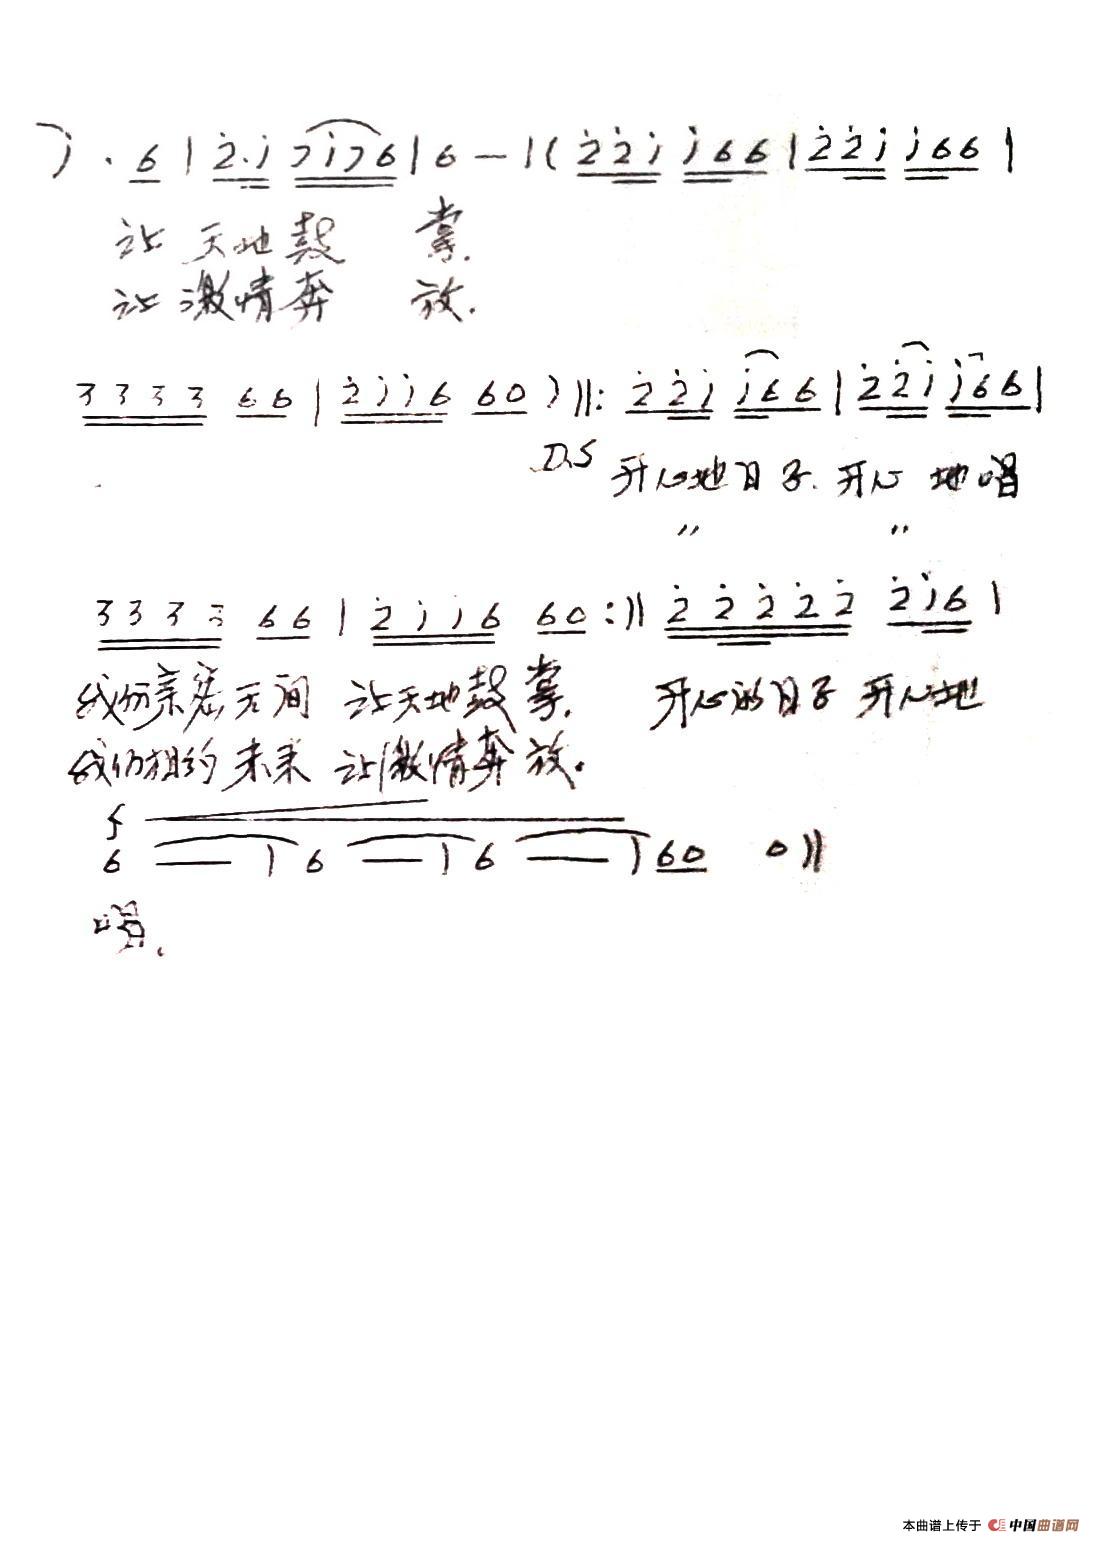 i · 6 | 2̇·i̇ 7i̇76 | 6 — | ( 2̇ 2̇ i̇ i̇ 6 6 | 2̇ 2̇ i̇ i̇ 6 6 |
让 天地鼓 掌.
让 激情奔 放.
3 3 3 3 6 6 | 2̇ i̇ i̇ 6 6 0 ) ‖: 2̇ 2̇ i̇ i̇ 6 6 | 2̇ 2̇ i̇ i̇ 6 6 |
D.S 开心地日子. 开心 地唱
〃 〃
3 3 3 3 6 6 | 2 i i 6 6 0 :‖ 2̇ 2̇ 2̇ 2̇ 2̇ 2̇ i̇ 6 |
我们亲密无间 让天地鼓掌. 开心的日子 开心地
我们相约未来 让激情奔放.
f
6 — | 6 — | 6 — | 6 0 0 ‖
唱.
本曲谱上传于 中国曲谱网